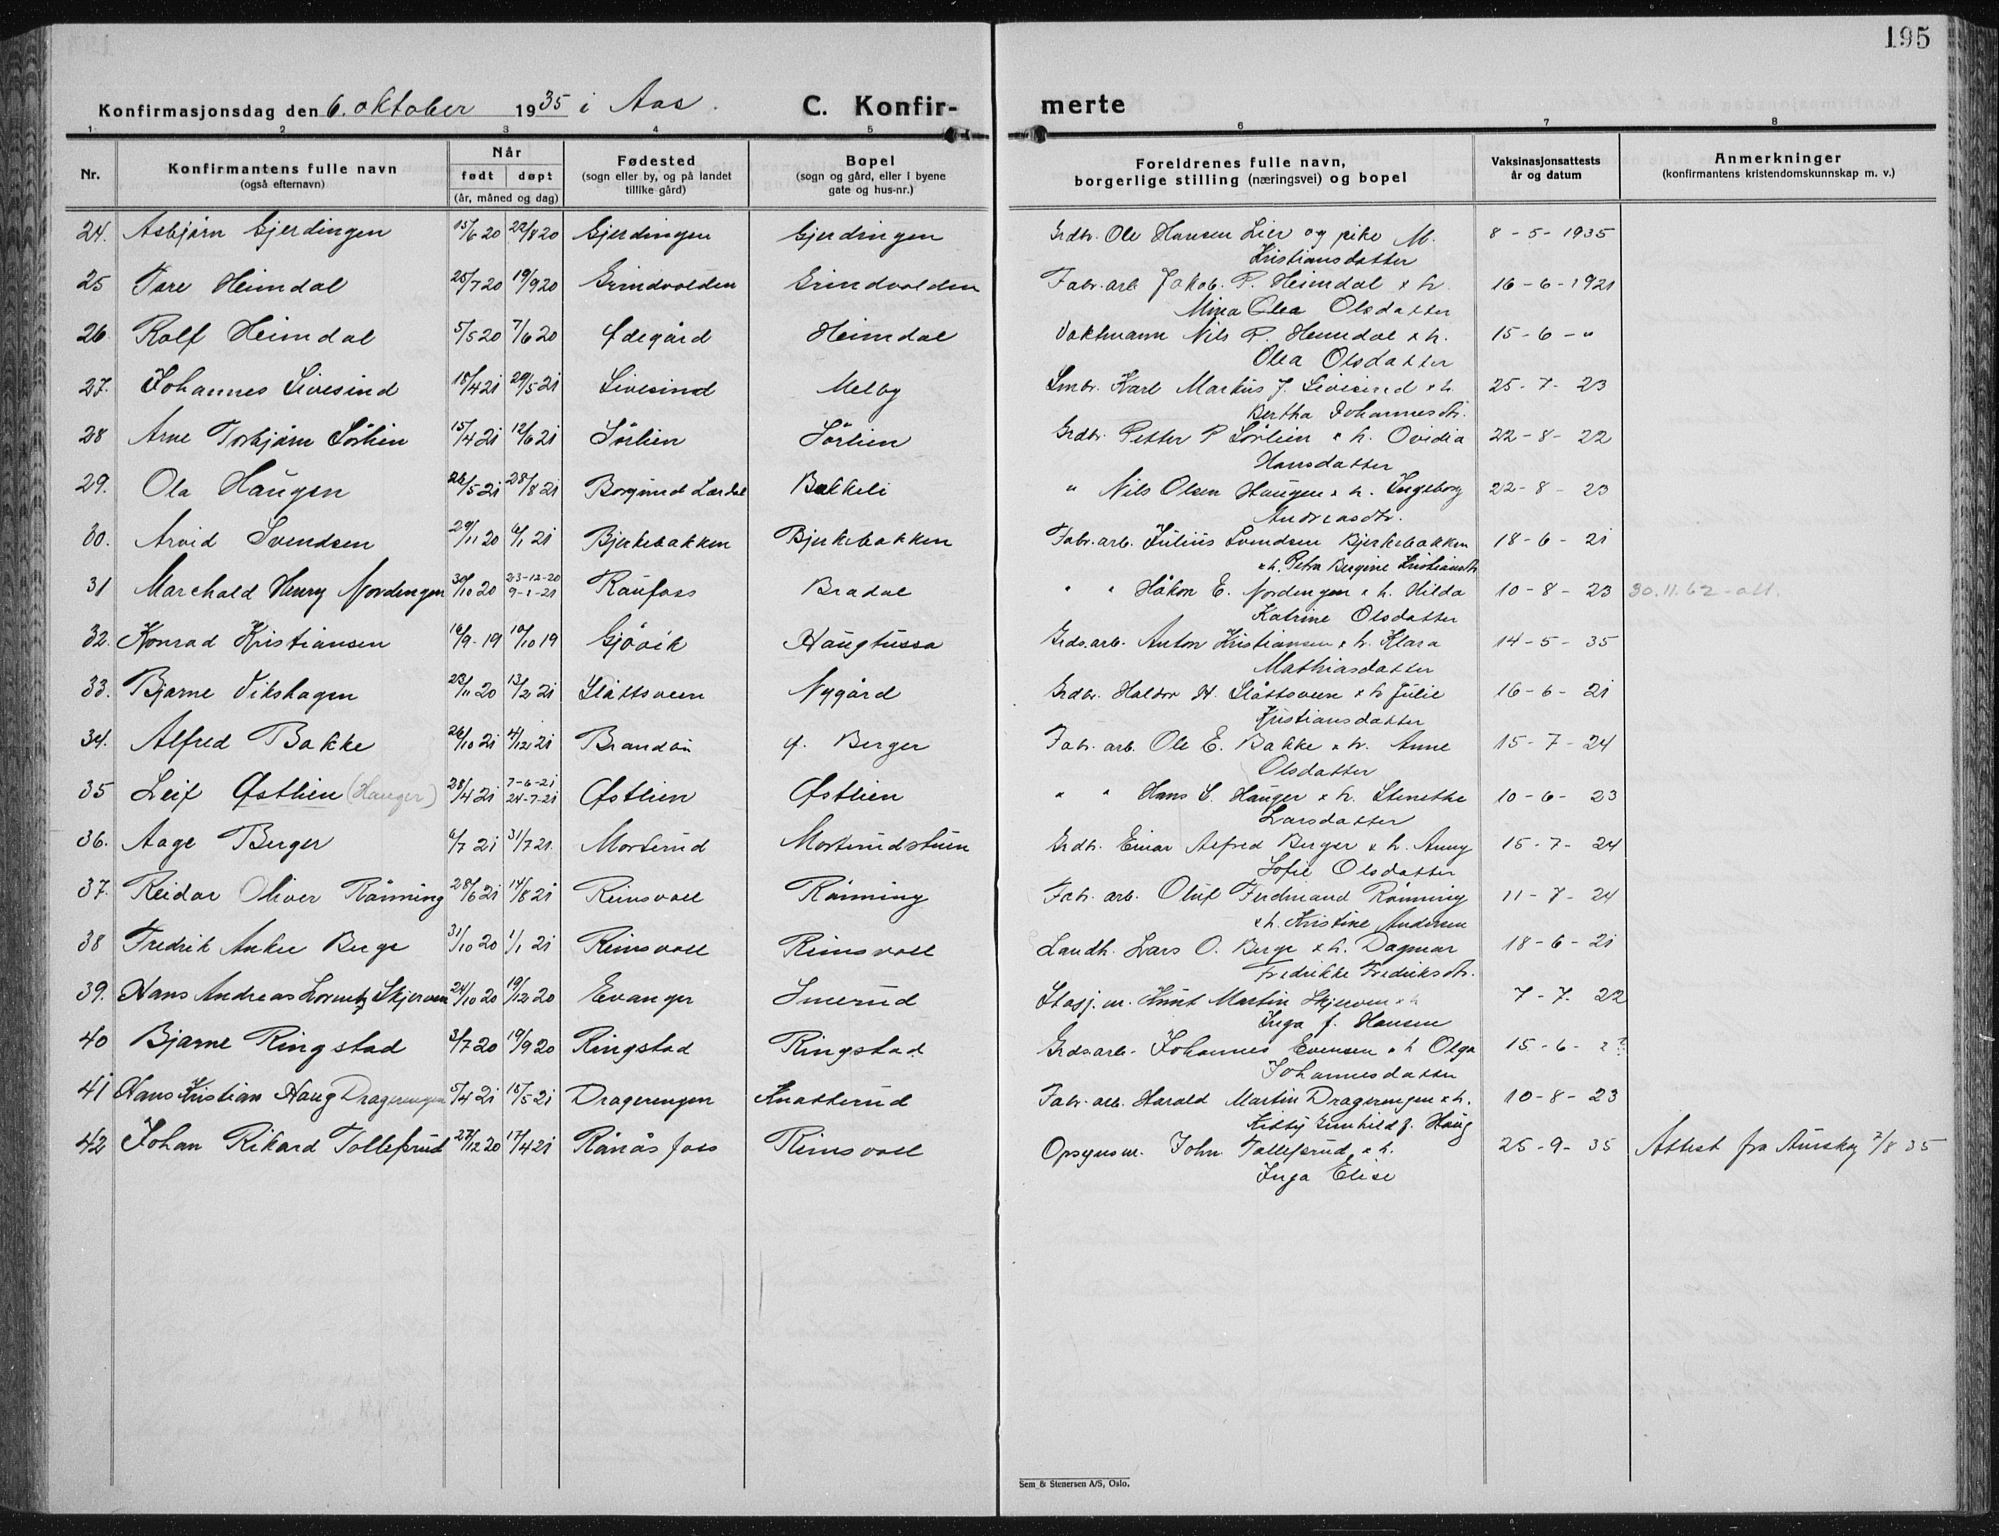 195
Konfirmasjonsdag den 6. oktober 1935 i Aas. C. Konfir- merte
1 2 3 4 5 6 7 8
Nr. Konfirmantens fulle navn (også efternavn) Når født døpt (år, måned og dag) Fødested (sogn eller by, og på landet tillike gård) Bopel (sogn og gård, eller i byene gate og hus-nr.) Foreldrenes fulle navn, borgerlige stilling (næringsvei) og bopel Vaksinasjonsattests år og datum Anmerkninger (konfirmantens kristendomskunnskap m. v.)
24. Asbjørn Gjerdingen 15/6 20 22/8 20 Gjerdingen Gjerdingen Grdbr. Ole Hansen Lier og pike M. 8-5-1935
Kristiansdatter
25 Tore Heimdal 25/7 20 19/9 20 Grindvolden Grindvolden Fabr. arb. Jakob. P. Heimdal & h. 16-6-1921
Mina Olea Olsdatter
26 Rolf Heimdal 5/5 20 7/6 20 Ødegård Heimdal Vaktmann Nils P. Heimdal & h. 15-6-"
Olea Olsdatter
27. Johannes Sivesind 18/4 21 29/5 21 Sivesind Melby Smbr. Karl Markus J. Sivesind & h. 25-7-23
Bertha Johannesdtr.
28 Arne Torbjørn Sörlien 15/4 21 12/6 21 Sörlien Sörlien Grdbr. Petter P Sörlien & h. Ovidia 22-8-22
Hansdatter
29. Ola Haugen 26/5 21 28/8 21 Borgund Lærdal Bakkeli " Nils Olsen Haugen & h. Ingeborg 22-8-23
Andreasdtr.
30. Arvid Svendsen 29/11 20 6/1 21 Bjerkebakken Bjerkebakken Fabr. arb. Julius Svendsen Bjerkebakken 18-6-21
& h. Petra Bergine Kristiansdtr.
31 Marchald Henry Nordengen 30/10 20 23-12-20 Raufoss Bradal " " Håkon E. Nordengen & h. Hilda 10-8-23 30.11.62 - att.
9-1-21
Katrine Olsdatter
32. Konrad Kristiansen 16/9-19 10/10 19 Gjövik Haugtussa Grds. arb. Anton Kristiansen & h. Klara 14-5-35
Mathiasdatter
33. Bjarne Vikshagen 28/11 20 13/2 21 Slåttsveen Nygård Grdbr. Haldor H. Slåttsveen & h Julie 16-6-21
Kristiansdatter
34. Alfred Bakke 26/10 21 4/12 21 Brandön f. Berger Fabr. arb. Ole E. Bakke & h. Anne 15-7-24
Olsdatter
35 Leif Østlien (Hauger) 28/4 21 7-6-21 Østlien Østlien " " Hans L. Hauger & h. Stenethe 10-6-23
24-7-21
Larsdatter
36. Aage Berger 6/7 21 31/7 21. Morterud Morterudstuen Grdbr. Einar Alfred Berger & h. Anny 15-7-24
Sofie Olsdatter
37. Reidar Oliver Rönning 28/6 21 14/8 21 Reinsvoll Rönning Fabr. arb. Oluf Ferdinand Rönning 11-7-24
& h. Kristine Andersen
38 Fredrik Anker Berge 31/10 20 1/1 21 Reinsvoll Reinsvoll Landh. Lars O. Berge & h. Dagmar 18-6-21
Fredrikke Fredriksdtr.
39. Hans Andreas Lorentz Skjerven 24/10 20 19/12 20 Evanger Smerud Stasj. m. Knut Martin Skjerven & h 7-7-22
Inga f. Hansen
40 Bjarne Ringstad 3/7 20 19/9 20 Ringstad Ringstad Grds. arb. Johannes Evensen & h Olga 15-6-
Johannesdatter
41 Hans Kristian Haug Dragerengen 5/4 21 15/5 21 Dragerengen Knatterud Fabr. arb. Harald Martin Dragerengen & h. 10-8-23
Kitty Gunhild f. Haug
42 Johan Rikard Tollefsrud 27/12 20 17/4 21 Rånåsfoss Reinsvoll Opsynsm. John Tollefsrud & h. 25-9-35 Attest fra Aurskog 7/8 35
Inga Elise
Sem & Stenersen A/S, Oslo.